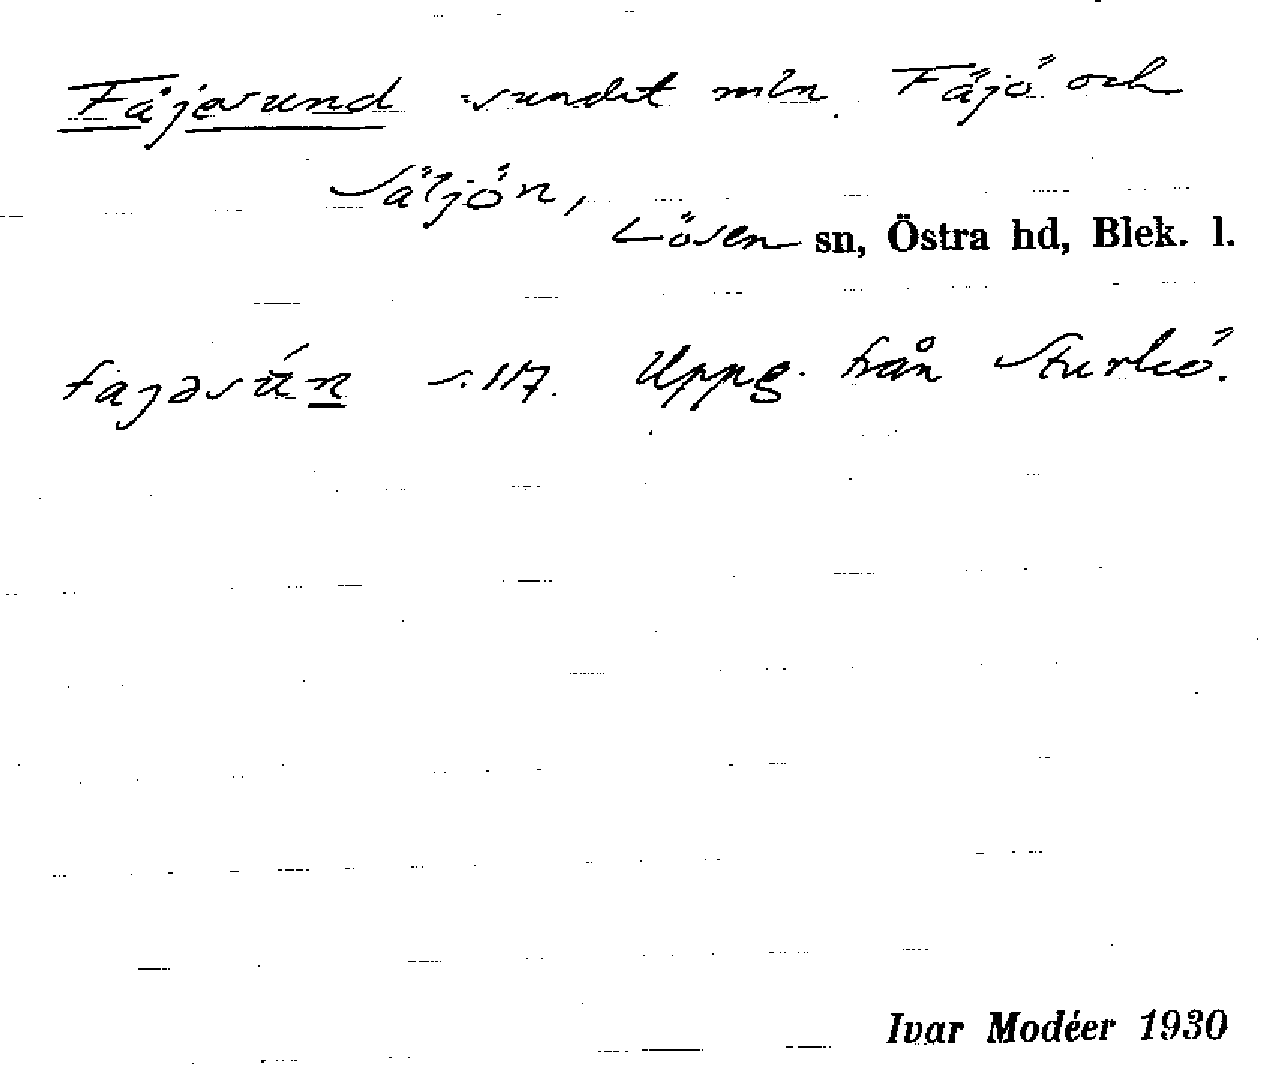 Fäjesund sundet mln Fäjö och
Säljön,
Lösen sn, Östra hd, Blek. l.
s. 117. Uppg. från Sturkö.
Ivar Modéer 1930